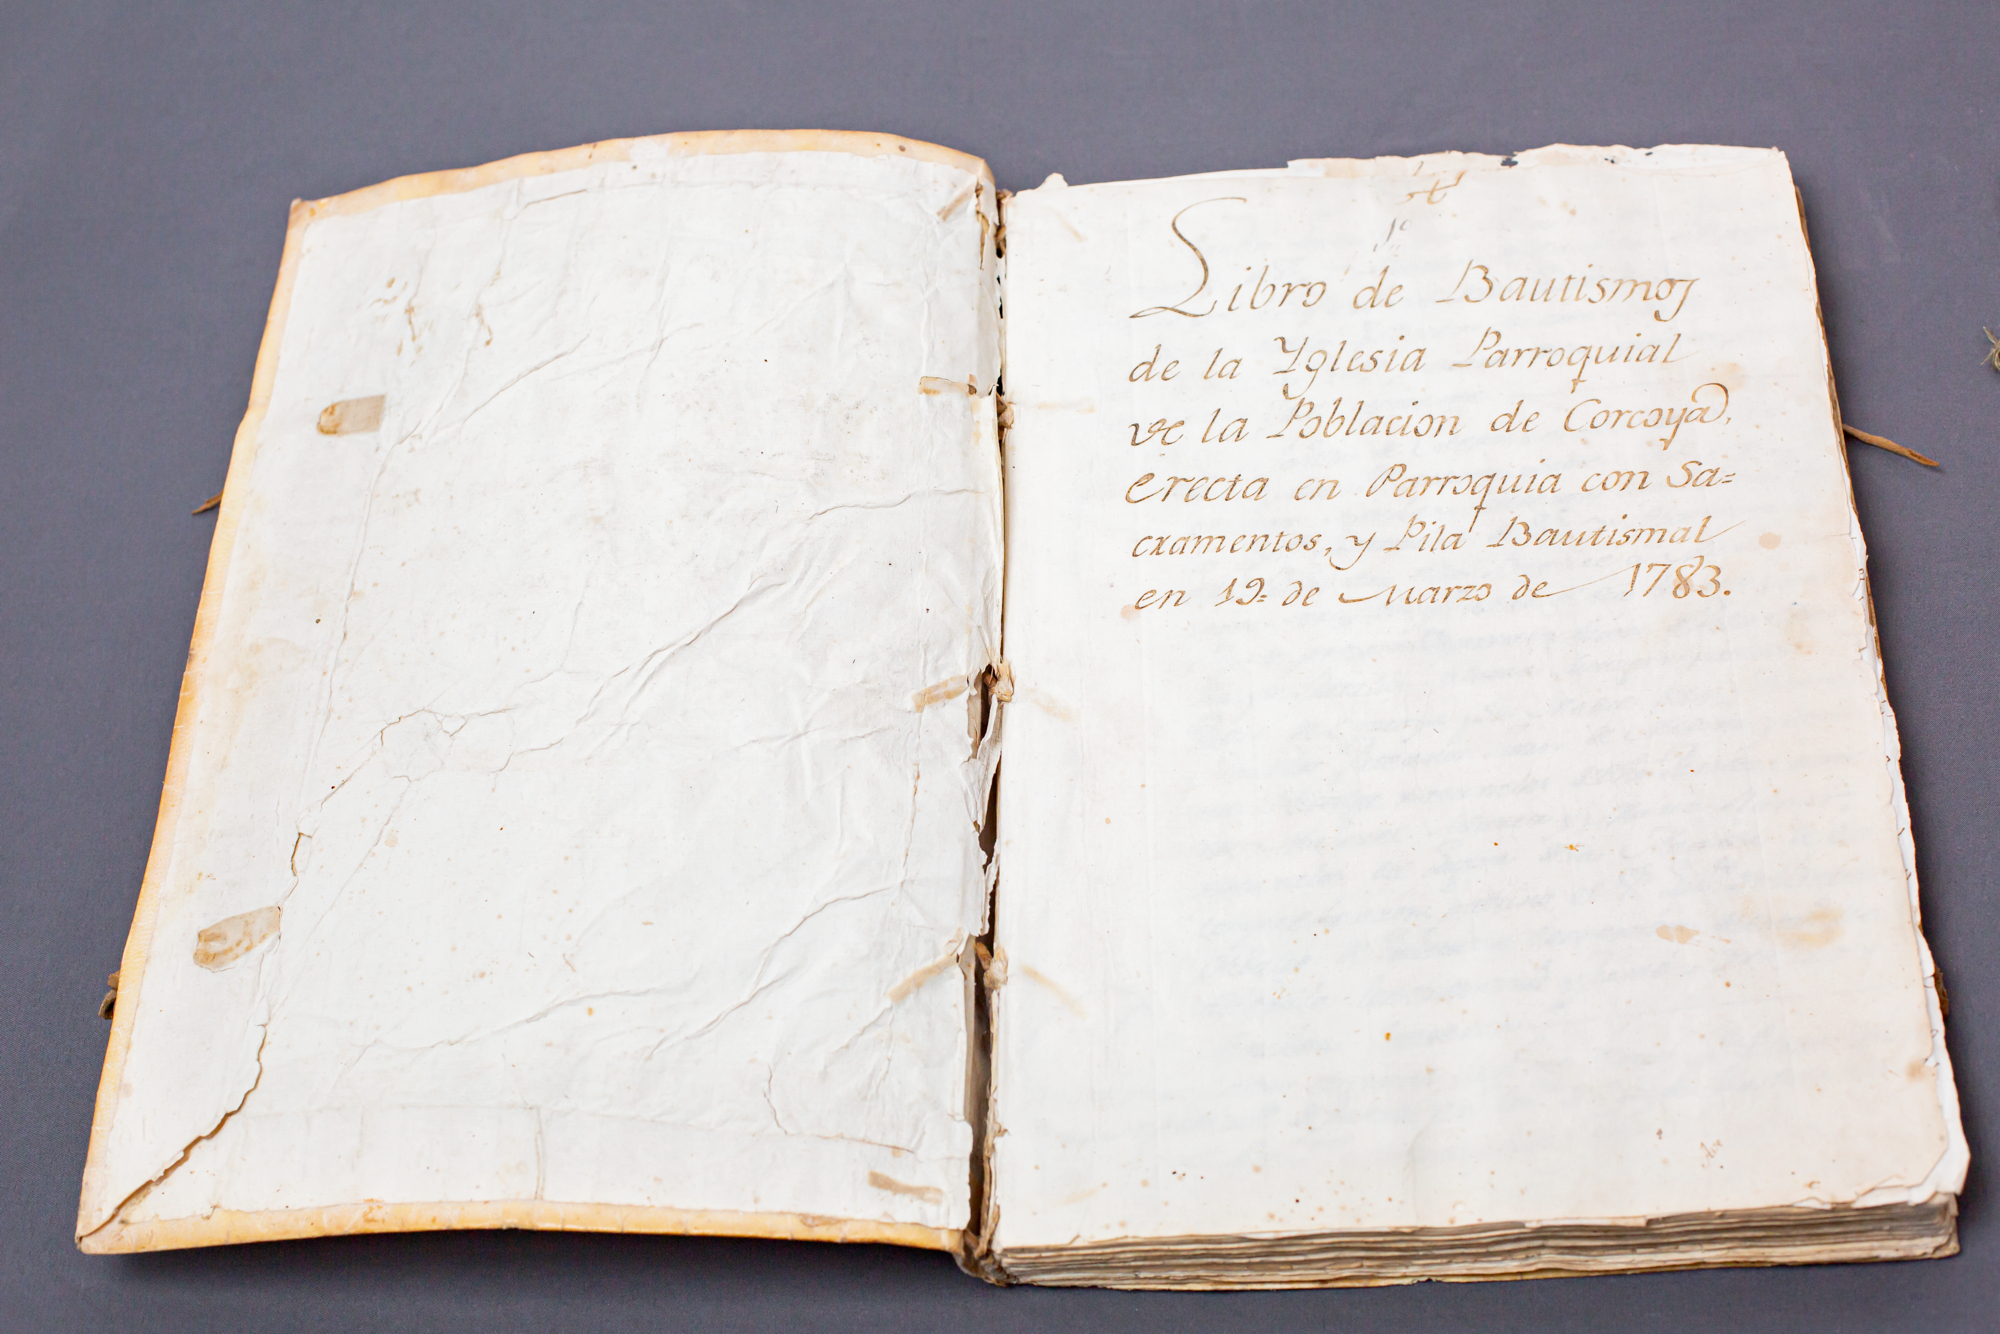 1º
Libro de Bautismos
de la Yglesia Parroquial
de la Poblacion de Corcoya,
erecta en Parroquia con Sa=
cramentos, y Pila Bautismal
en 19= de Marzo de 1783.